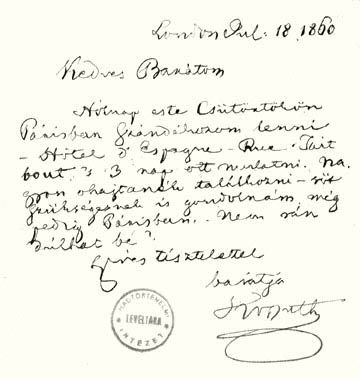 London Jul. 18 1860
Kedves Barátom
Holnap este Csütörtökön
Párisban szándékozom lenni
- Hôtel d'Espagne - Rue Tait
bout. 's 3 nap ott mulatni. Na
gyon ohajtanék találkozni - sőt
szükségesnek is gondolnám még
pedig Párisban. Nem rán
dulhat bé?
szives tisztelettel
barátja
Kossuth
HADTÖRTÉNELMI
LEVÉLTÁRA
INTÉZET